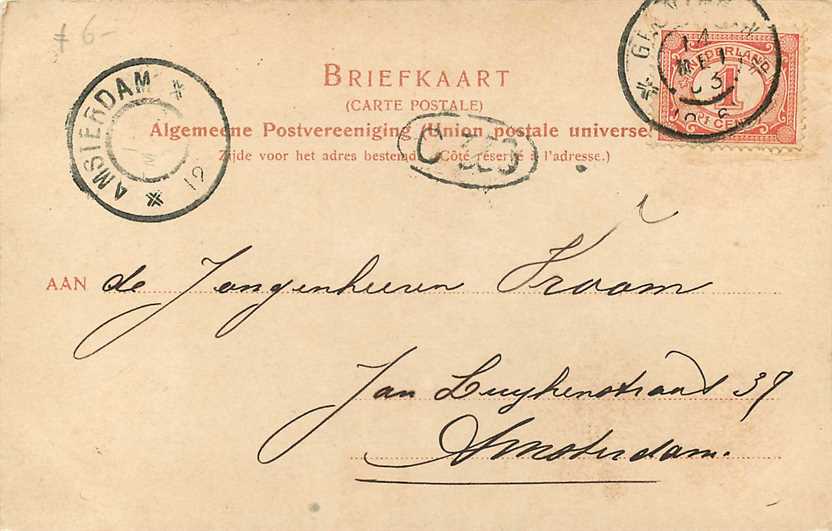 6-
BRIEFKAART
(CARTE POSTALE)
Algemeene Postvereeniging (Union postale universe
Zijde voor het adres bestemd. (Côté réservé à l'adresse.)
AMSTERDAM
12
14
MEI
03
NEDERLAND
1
CENT
AAN de Jongenheeren Vroom
Jan Luykenstraat 37
Amsterdam.